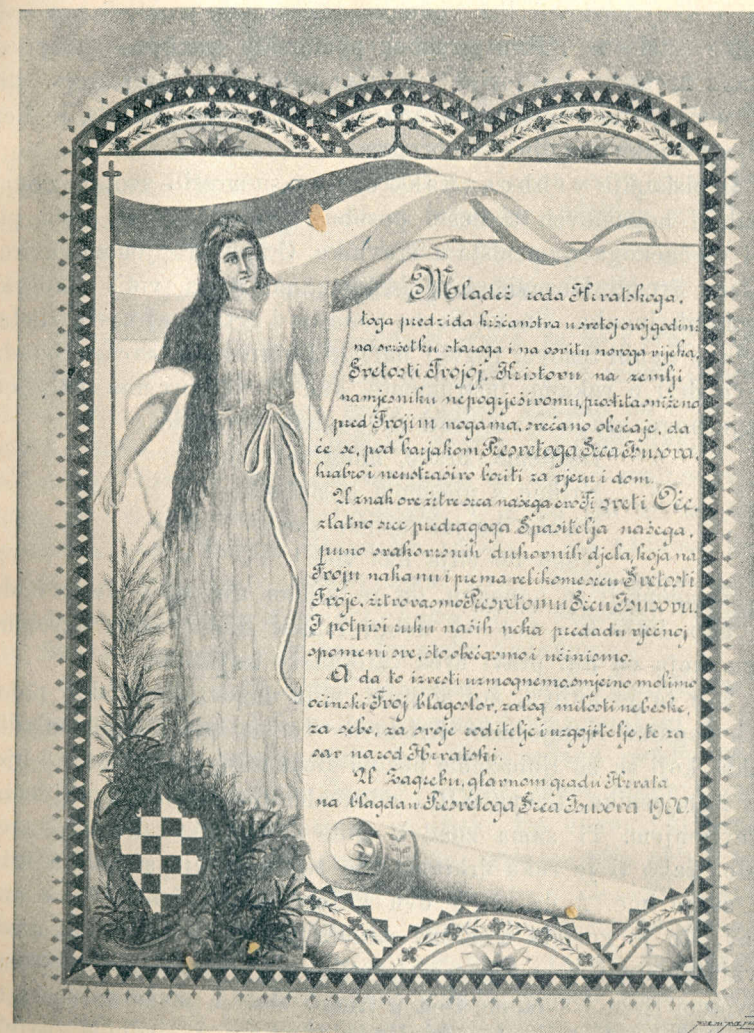 Mladež roda Hrvatskoga,
toga predziđa kršćanstva u svetoj ovoj godini
na svršetku staroga i na osvitu novoga vijeka,
Svetosti Tvojoj, Kristovu na zemlji
namjesniku nepogrješivomu, prostrta sniženo
pred Tvojim nogama, svečano obećaje, da
će se, pod barjakom Presvetoga Srca Isusova,
hrabro i neustrašivo boriti za vjeru i dom.
U znak ove žrtve srca našega evo Ti sveti Oče,
zlatno srce predragoga Spasitelja našega,
puno svakovrsnih duhovnih djela, koja na
Tvoju nakanu i prema velikome srcu Svetosti
Tvoje, žrtvovasmo Presvetomu Srcu Isusovu.
I potpisi ruku naših neka predadu vječnoj
spomeni sve, što obećasmo i učinismo.
A da to izvesti uzmognemo, smjerno molimo
očinski Tvoj blagoslov, zalog milosti nebeske,
za sebe, za svoje roditelje i uzgojitelje, te za
sav narod Hrvatski.
U Zagrebu, glavnom gradu Hrvata
na blagdan Presvetoga Srca Isusova 1900.